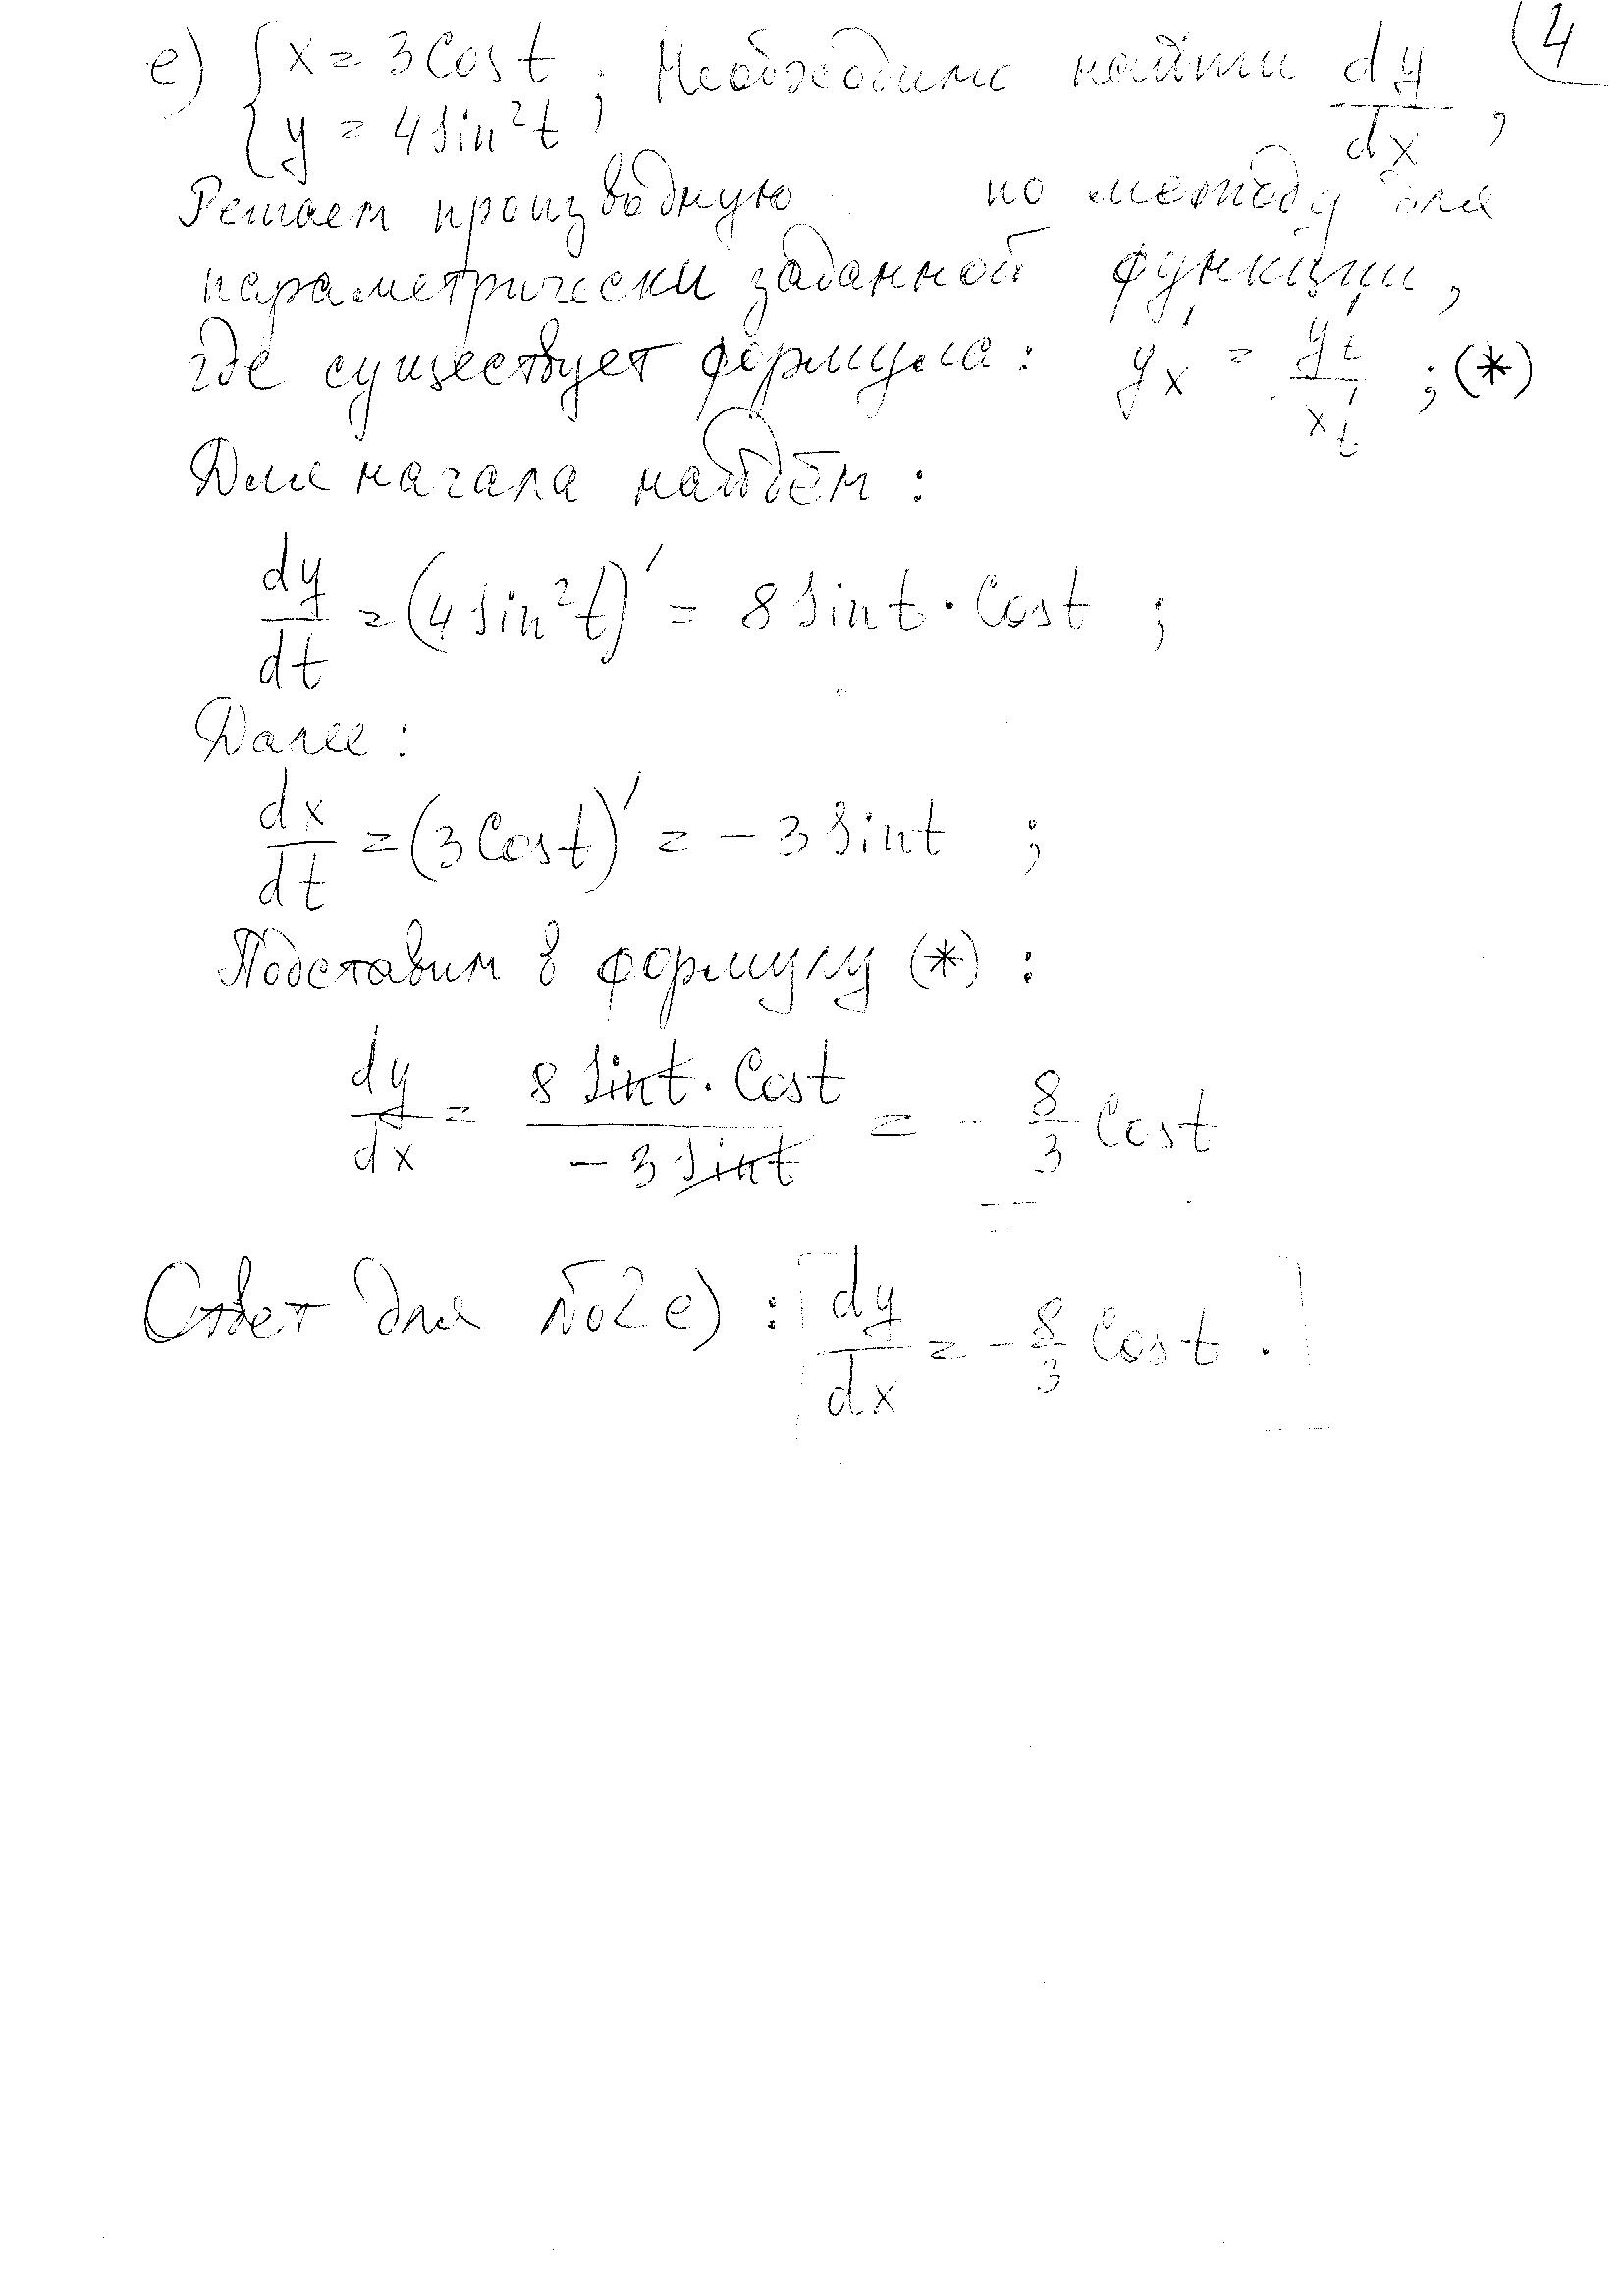 4
е) { x = 3Cost ; Необходимо найти dy/dx ,
{ y = 4sin²t
Решаем производную по методу для
параметрически заданной функции,
где существует формула: y'x = y't / x't ; (*)
Для начала найдём :
dy/dt = (4sin²t)' = 8sint · Cost ;
Далее :
dx/dt = (3Cost)' = - 3sint ;
Подставим в формулу (*) :
dy/dx = 8sint · Cost / -3sint = - 8/3 Cost
Ответ для №2 е) : dy/dx = - 8/3 Cost .